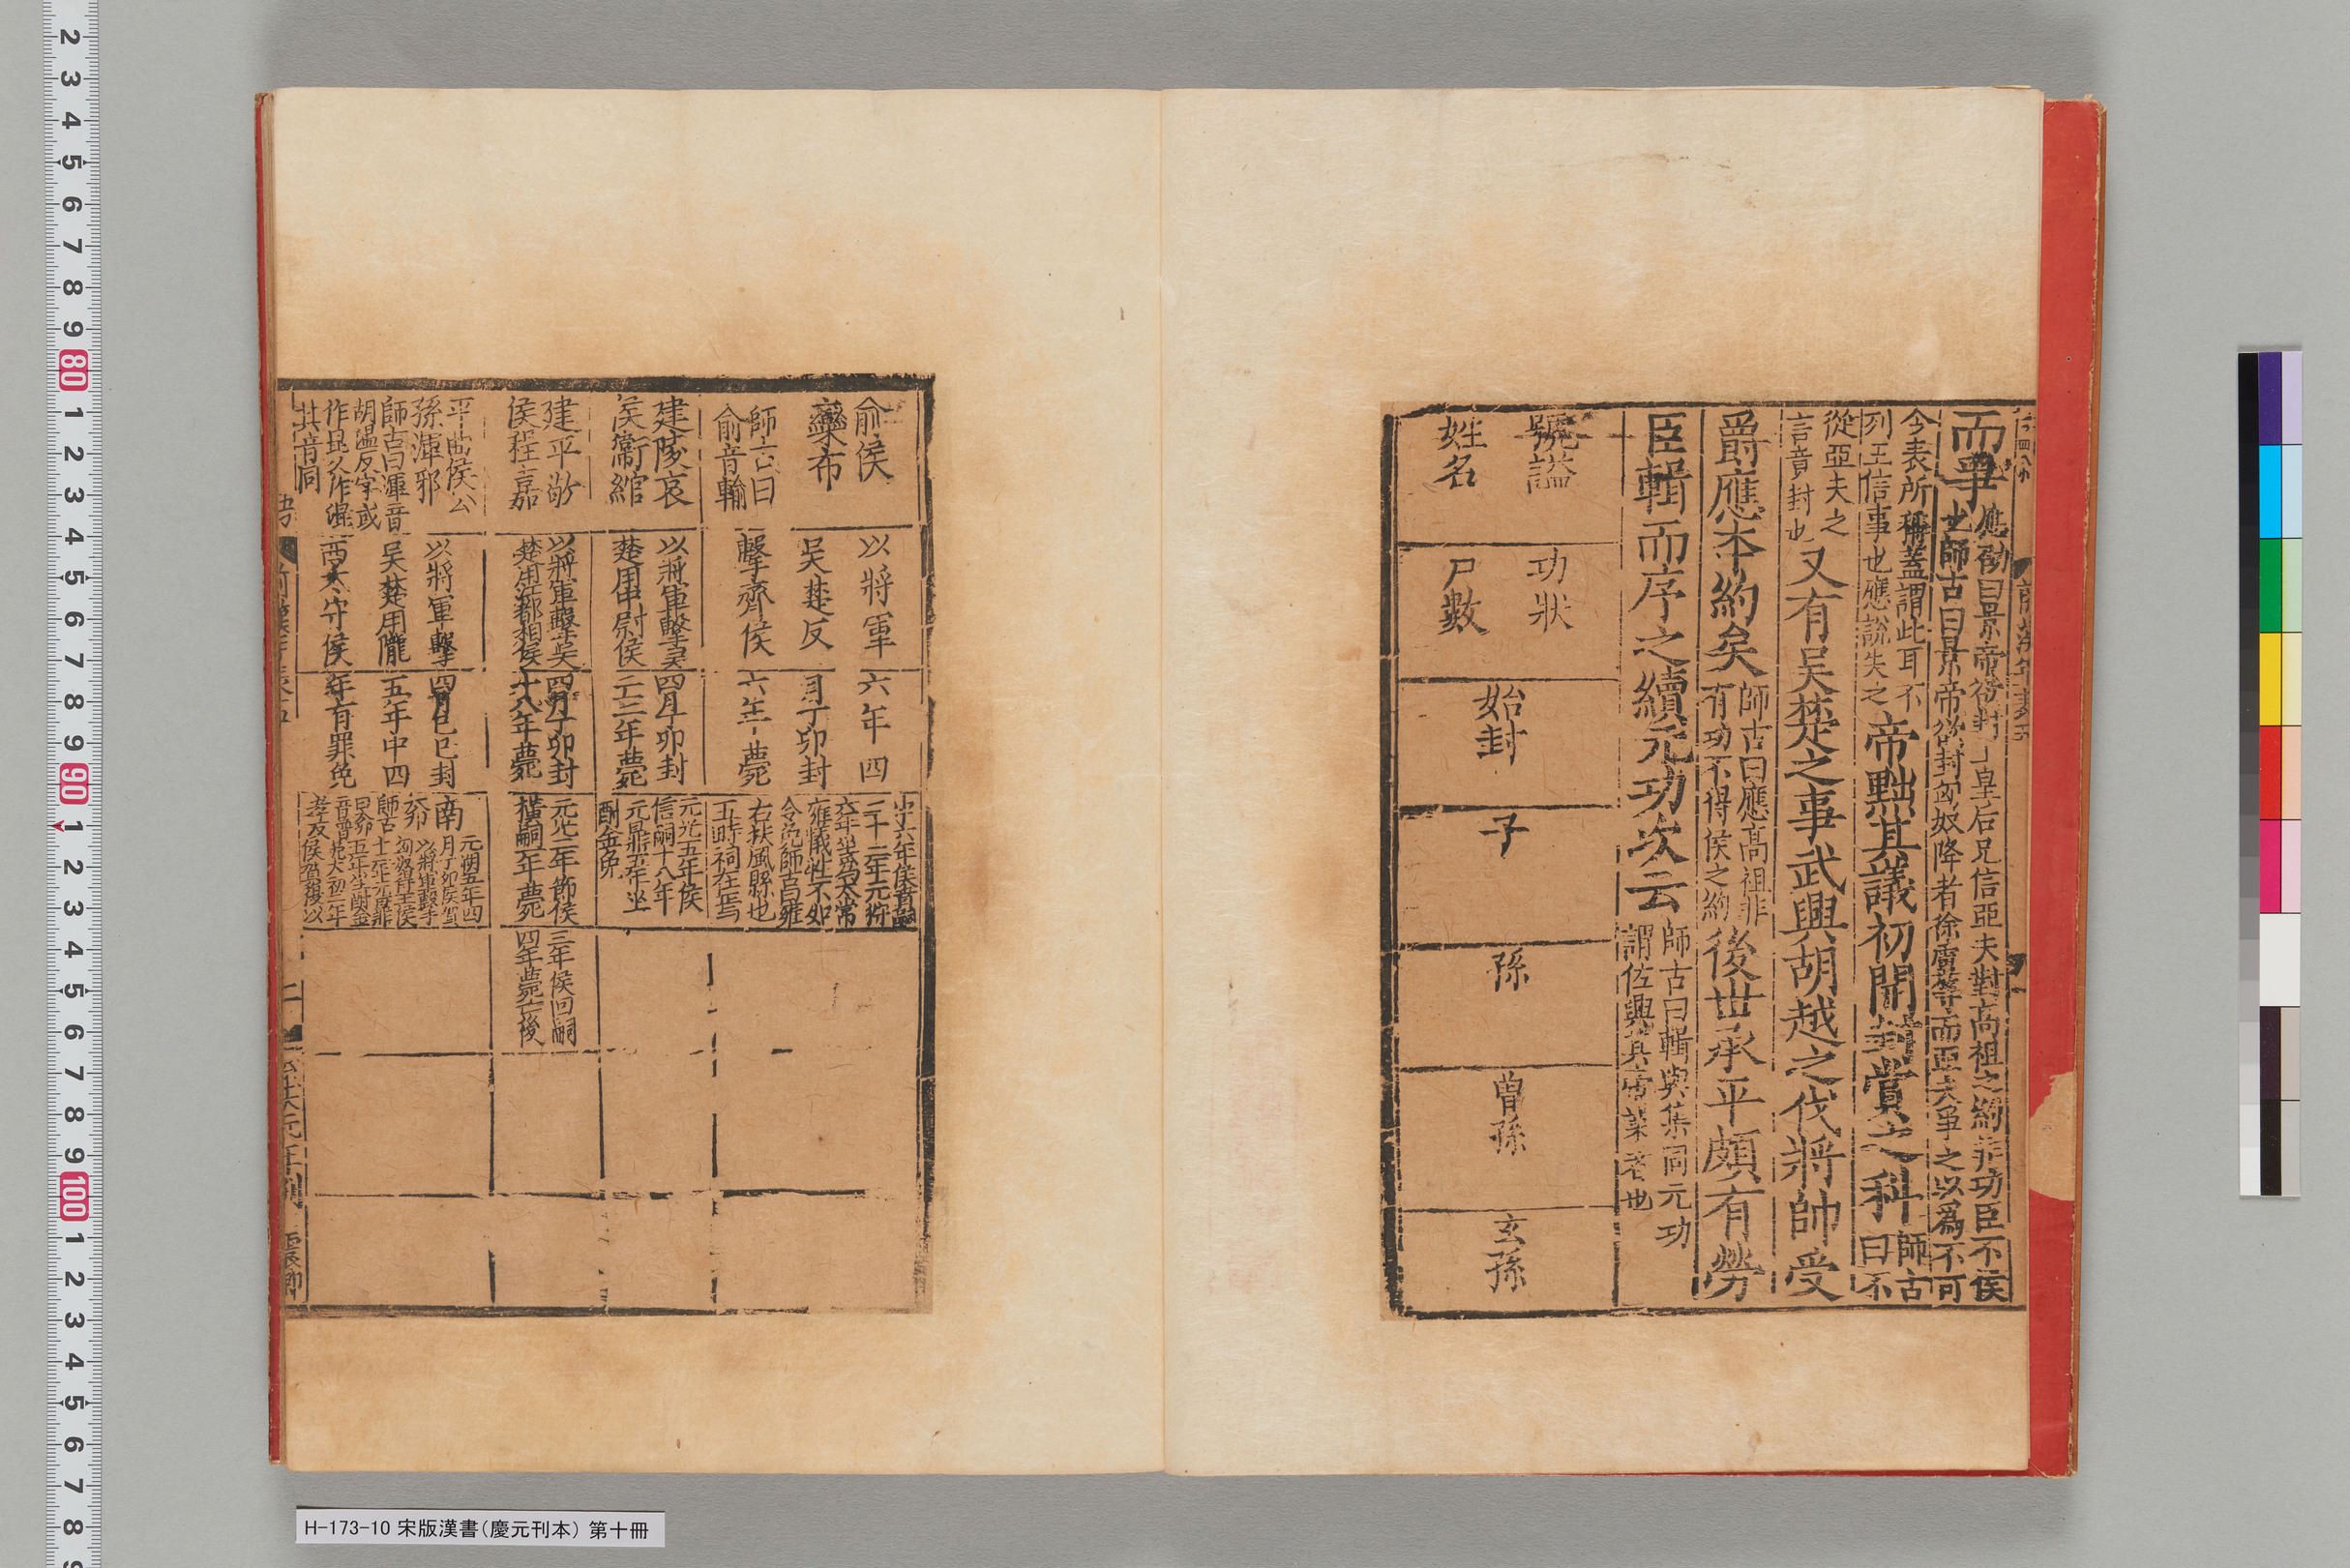 而爭
應劭曰景帝欲封皇后兄信亞夫對高祖之約非功臣不侯
也師古曰景帝欲封匈奴降者徐盧等而亞夫爭之以爲不可
今表所稱蓋謂此耳不
列王信事也應說失之
帝黜其議初開封賞之科
師古
曰不
從亞夫之
言音封也
又有吳楚之事武興胡越之伐將帥受
爵應本約矣
師古曰應高祖非
有功不得侯之約
後世承平頗有勞
臣輯而序之續元功次云
師古曰輯與集同元功
謂佐興其帝業者也
號謚
姓名
功狀
戶數
始封
子
孫
曾孫
玄孫
俞侯
欒布
師古曰
俞音輸
以將軍
吳楚反
擊齊侯
六年四
月丁卯封
六年薨
中六年侯賁嗣
二十二年元狩
六年坐爲太常
雍犧牲不如
令免師古曰雍
右扶風縣也
五畤祠在焉
建陵哀
侯衛綰
以將軍擊吳
楚用中尉侯
四月丁卯封
二十二年薨
元光五年侯
信嗣十八年
元鼎五年坐
酎金免
建平敬
侯程嘉
以將軍擊吳
楚用江都相侯
四月丁卯封
十八年薨
元光二年節侯
橫嗣一年薨
三年侯回嗣
四年薨亡後
平曲侯公
孫渾邪
師古曰渾音
胡溫反字或
作昆又作混
其音同
以將軍擊
吳楚用隴
西太守侯
四月己巳封
五年中四
年有罪免
南
奅
元朔五年四
月丁卯侯賀
以將軍擊匈
奴得王侯
孝反侯賀復以
H-173-10 宋版漢書(慶元刊本) 第十冊